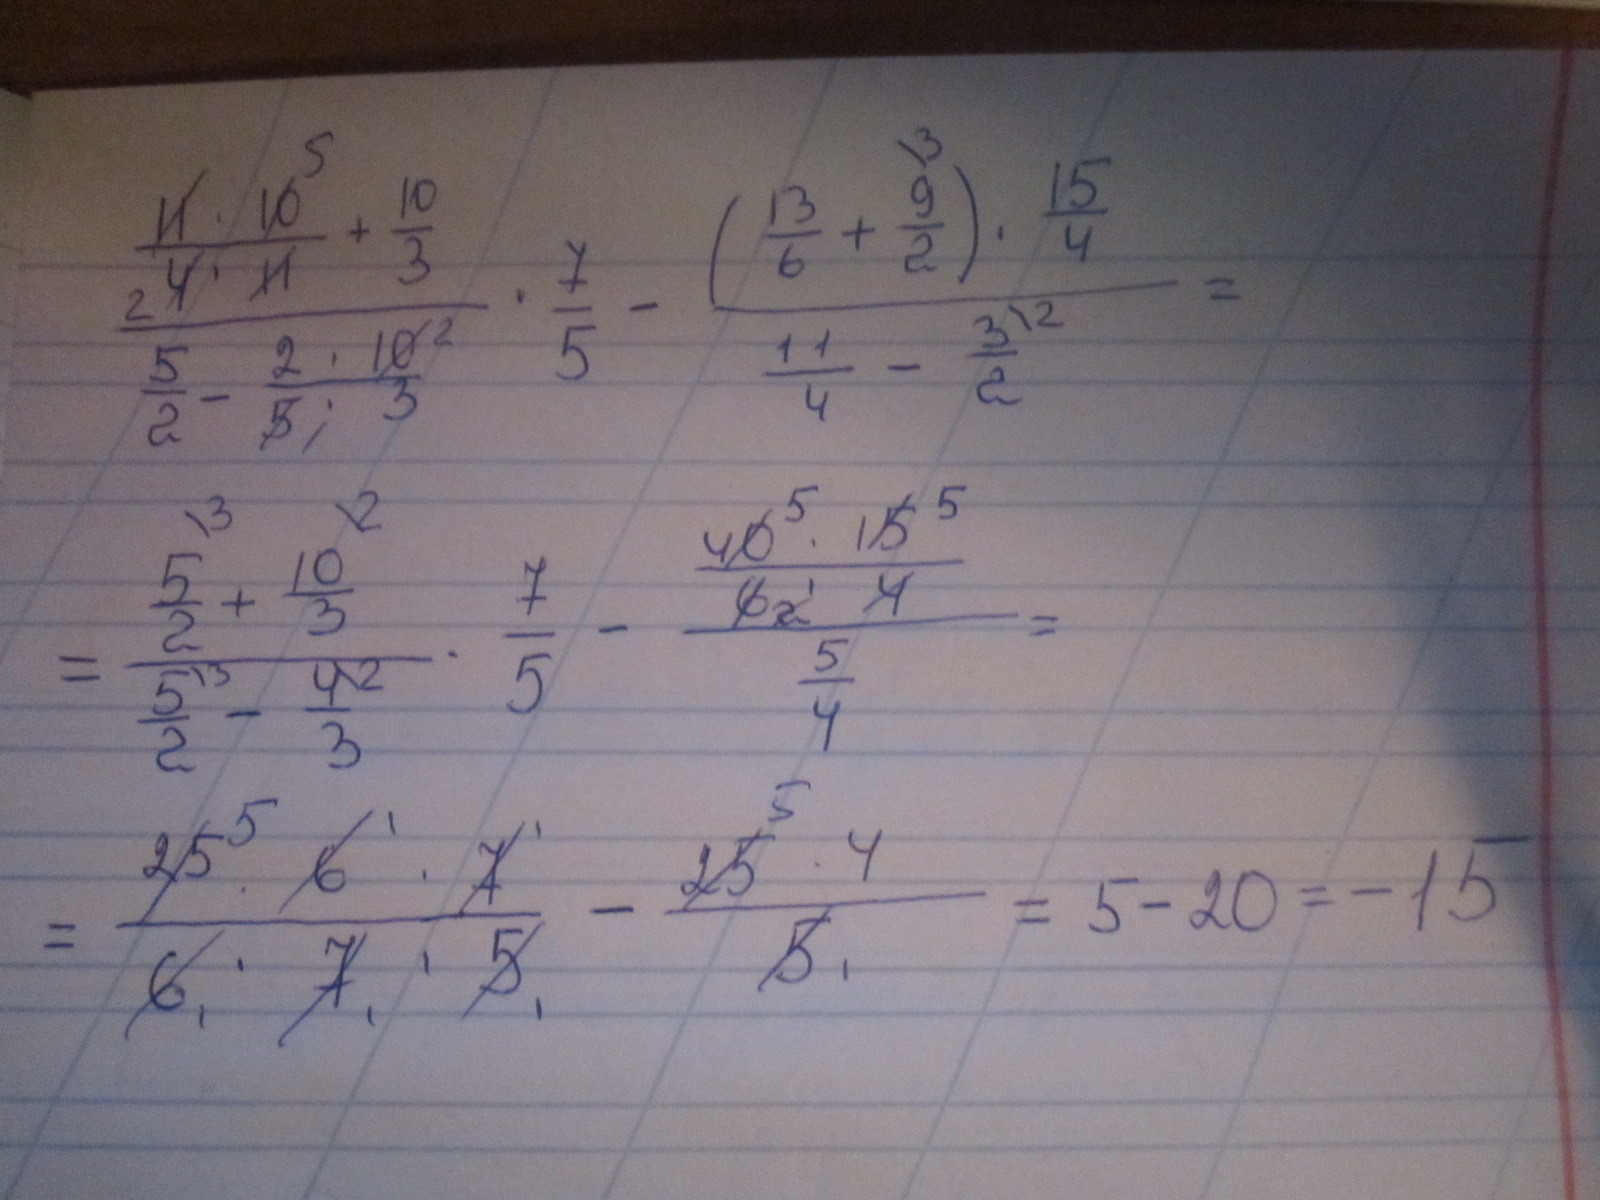 (11 · 10⁵/(₂4 · 11) + 10/3)/(5/2 − 2 · 10²/(5₁ · 3)) · 7/5 − ((13/6 + 9\3/2) · 15/4)/(11/4 − 3\2/2) =
= (5\3/2 + 10\2/3)/(5\3/2 − 4\2/3) · 7/5 − (40⁵ · 15⁵/(6₂ · 4))/(5/4) =
= 25⁵ · 6¹ · 7¹/(6₁ · 7₁ · 5₁) − 25⁵ · 4/5₁ = 5 − 20 = −15